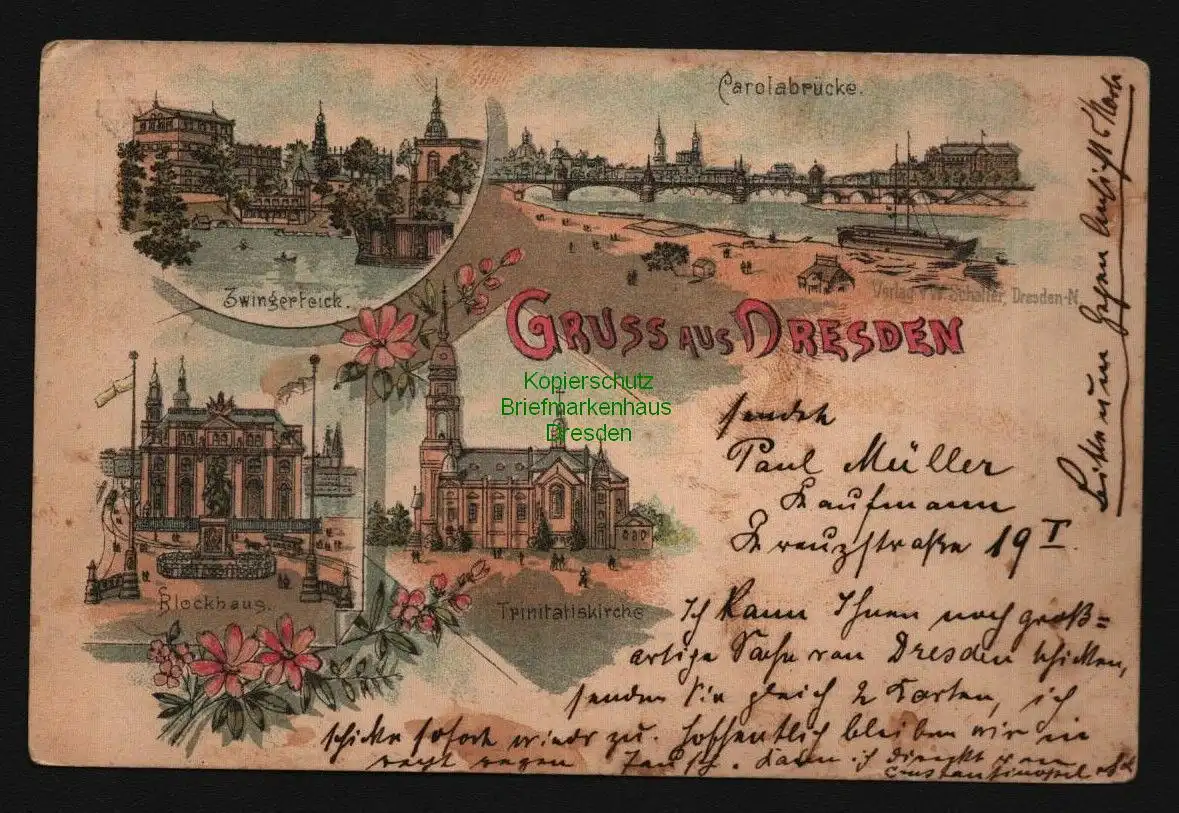 Carolabrücke.
Zwingerteich.
Verlag v. W. Schaffer, Dresden-N.
GRUSS AUS DRESDEN
Kopierschutz
Briefmarkenhaus
Dresden
Blockhaus.
Trinitatiskirche
sendet
Paul Müller
Kaufmann
Kreuzstraße 19 I.
Ich kann Ihnen noch groß=
artige Sache von Dresden schicken,
senden Sie gleich 2 Karten, ich
schicke sofort wieder zu. Hoffentlich bleiben wir in
recht regen Tausch. Kann ich direkt
Constantinopel
Bitte nur gegen Ansicht